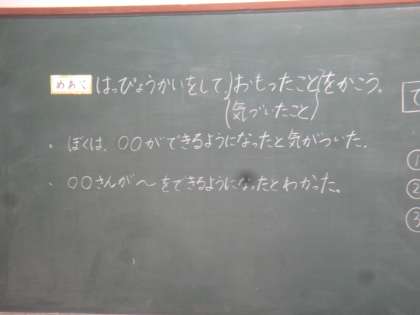 めあて はっぴょうかいをして、おもったことをかこう。
(気づいたこと)
・ ぼくは、○○ができるようになったと気がついた。
・ ○○さんが～をできるようになったとわかった。
①
②
③